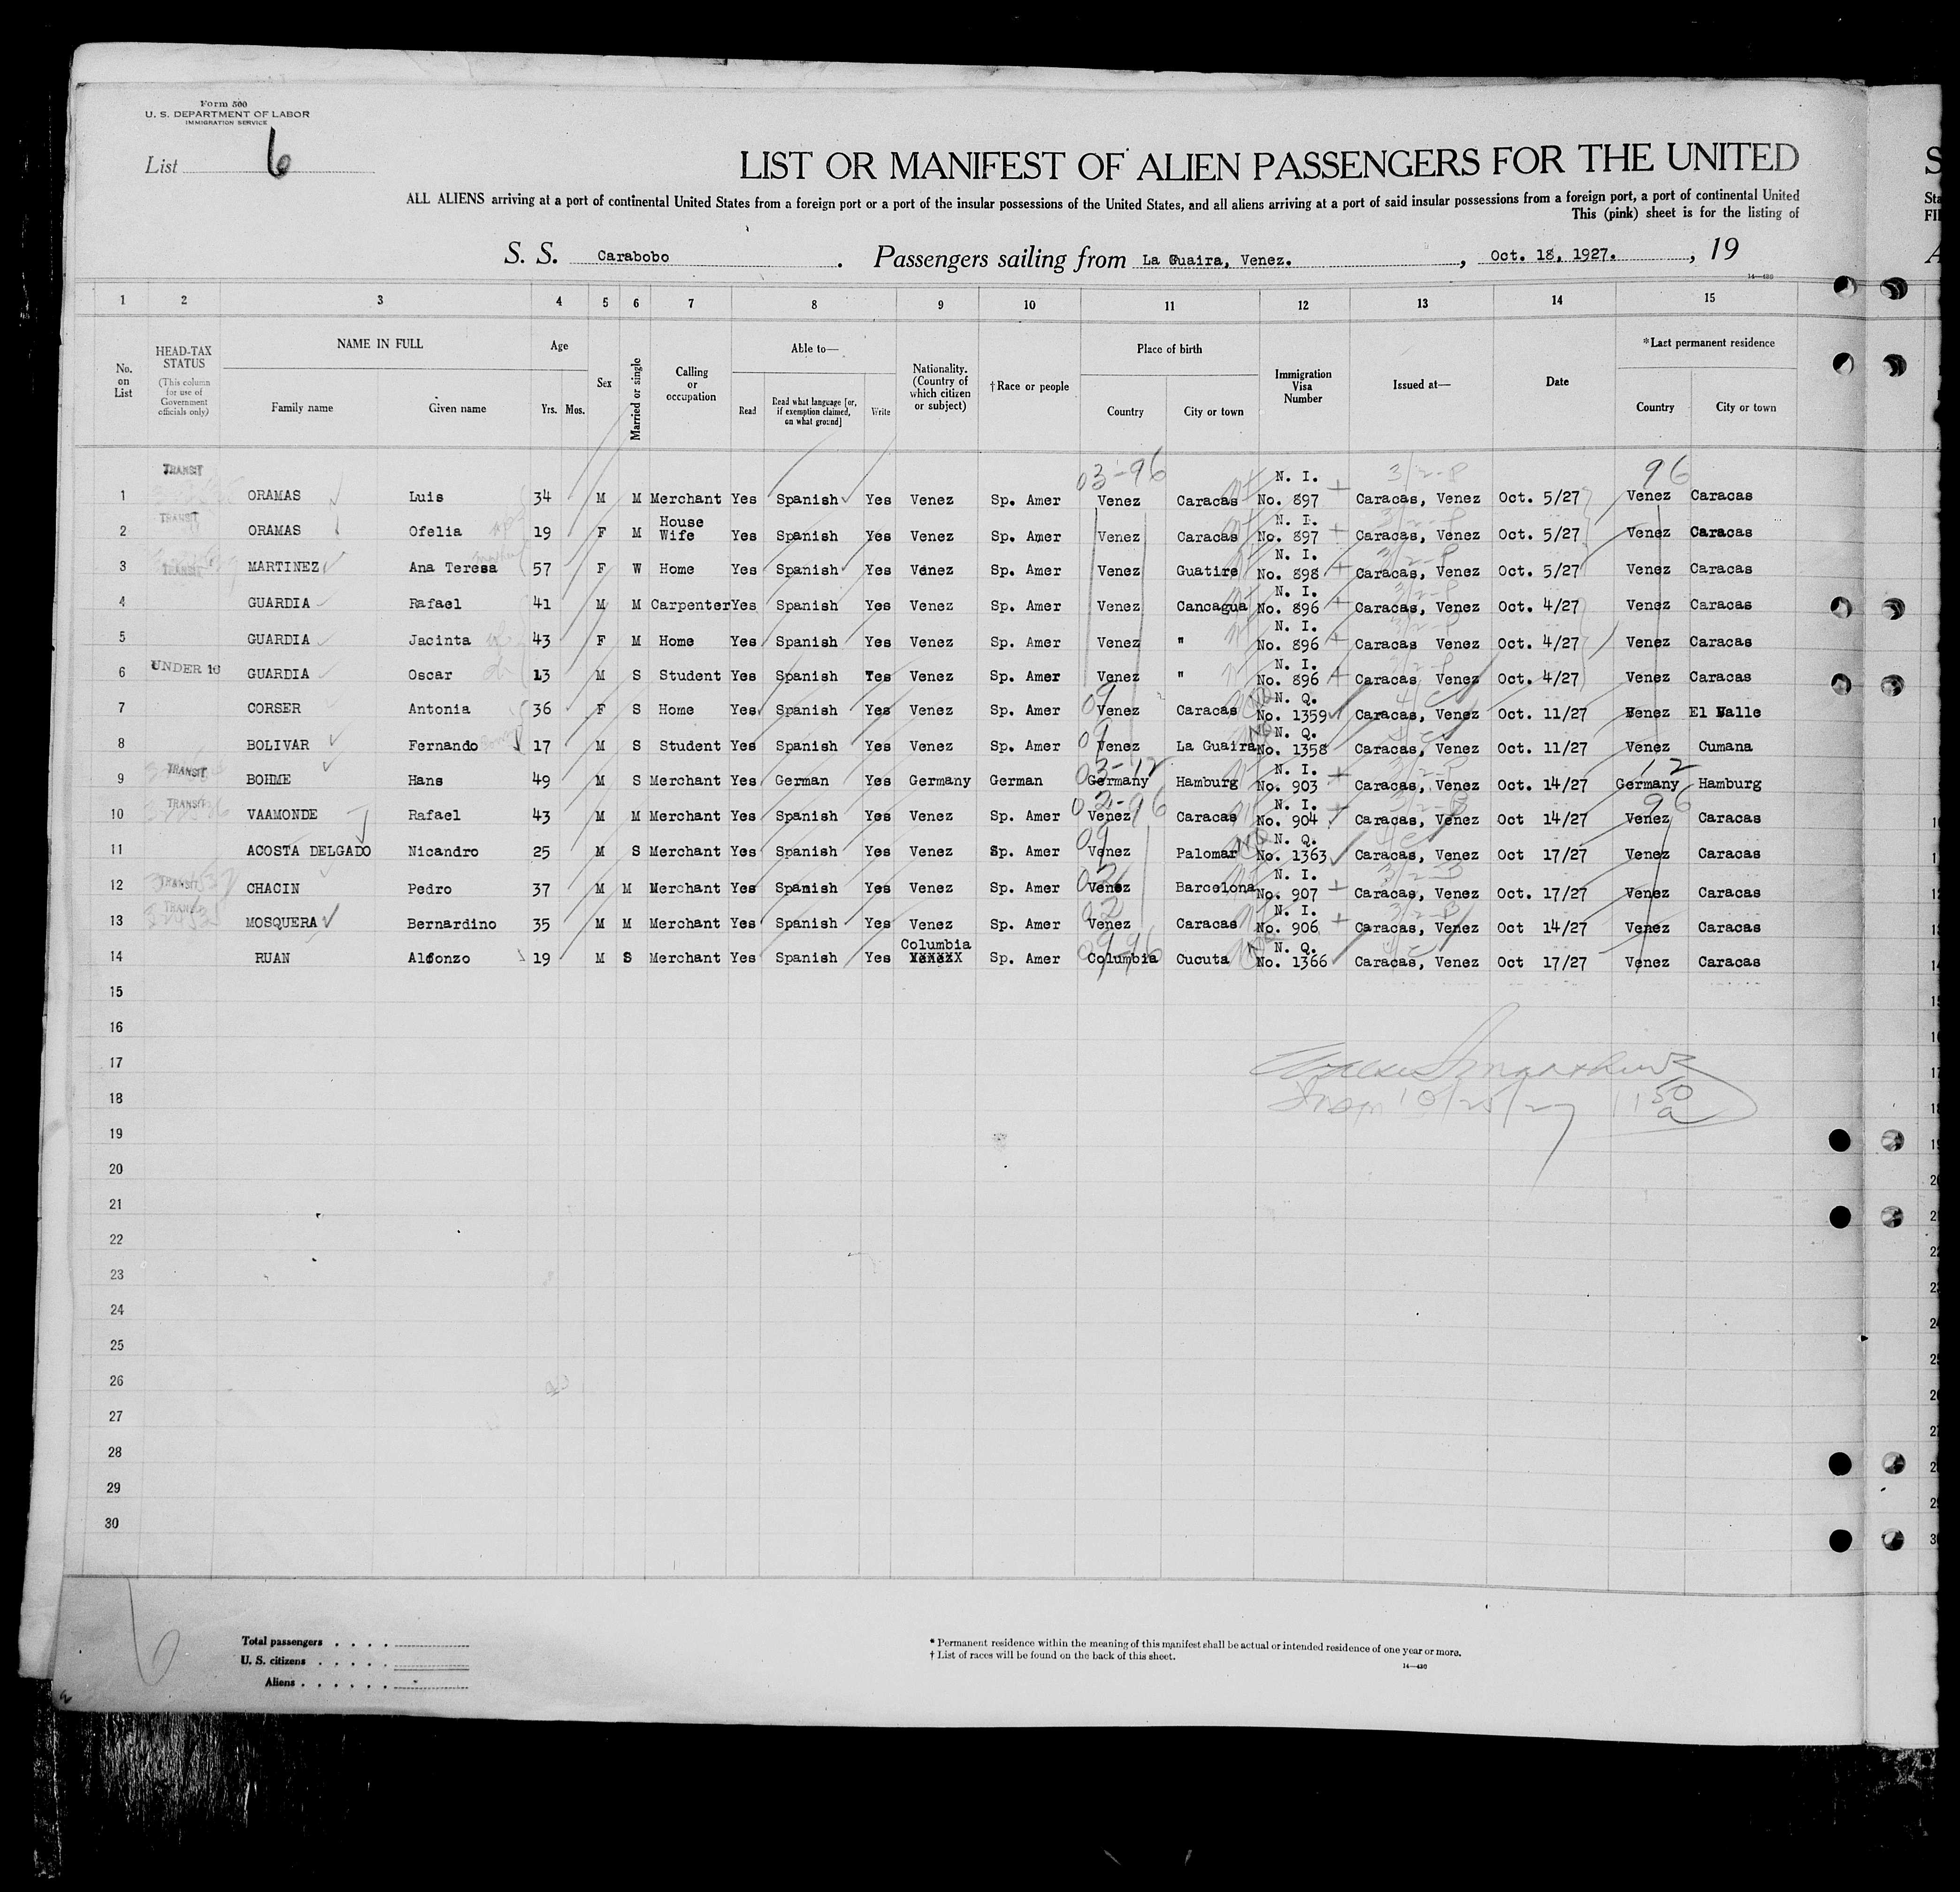 Form 500
U. S. DEPARTMENT OF LABOR
IMMIGRATION SERVICE
List 6
LIST OR MANIFEST OF ALIEN PASSENGERS FOR THE UNITED
ALL ALIENS arriving at a port of continental United States from a foreign port or a port of the insular possessions of the United States, and all aliens arriving at a port of said insular possessions from a foreign port, a port of continental United
This (pink) sheet is for the listing of
S. S. Carabobo . Passengers sailing from La Guaira, Venez. , Oct. 18, 1927. , 19
14—430
1 2 3 4 5 6 7 8 9 10 11 12 13 14 15
No. on List
HEAD-TAX STATUS (This column for use of Government officials only)
NAME IN FULL Family name Given name
Age Yrs. Mos.
Sex
Married or single
Calling or occupation
Able to— Read Read what language [or, if exemption claimed, on what ground] Write
Nationality. (Country of which citizen or subject)
†Race or people
Place of birth Country City or town
Immigration Visa Number
Issued at—
Date
*Last permanent residence Country City or town
03-96 3/2-P 96
1 TRANSIT ORAMAS Luis 34 M M Merchant Yes Spanish Yes Venez Sp. Amer Venez Caracas N. I. No. 897 Caracas, Venez Oct. 5/27 Venez Caracas
2 TRANSIT ORAMAS Ofelia 19 F M House Wife Yes Spanish Yes Venez Sp. Amer Venez Caracas N. I. No. 897 Caracas, Venez Oct. 5/27 Venez Caracas
3 TRANSIT MARTINEZ Ana Teresa 57 F W Home Yes Spanish Yes Venez Sp. Amer Venez Guatire N. I. No. 898 Caracas, Venez Oct. 5/27 Venez Caracas
4 GUARDIA Rafael 41 M M Carpenter Yes Spanish Yes Venez Sp. Amer Venez Cancagua N. I. No. 896 Caracas, Venez Oct. 4/27 Venez Caracas
5 GUARDIA Jacinta 43 F M Home Yes Spanish Yes Venez Sp. Amer Venez " N. I. No. 896 Caracas Venez Oct. 4/27 Venez Caracas
6 UNDER 16 GUARDIA Oscar 13 M S Student Yes Spanish Yes Venez Sp. Amer Venez " N. I. No. 896 Caracas Venez Oct. 4/27 Venez Caracas
7 CORSER Antonia 36 F S Home Yes Spanish Yes Venez Sp. Amer Venez Caracas N. Q. No. 1359 Caracas, Venez Oct. 11/27 Venez El Valle
8 BOLIVAR Fernando 17 M S Student Yes Spanish Yes Venez Sp. Amer Venez La Guaira N. Q. No. 1358 Caracas, Venez Oct. 11/27 Venez Cumana
9 TRANSIT BOHME Hans 49 M S Merchant Yes German Yes Germany German 03-12 Germany Hamburg N. I. No. 903 Caracas, Venez Oct. 14/27 12 Germany Hamburg
10 TRANSIT VAAMONDE Rafael 43 M M Merchant Yes Spanish Yes Venez Sp. Amer 02-96 Venez Caracas N. I. No. 904 Caracas, Venez Oct 14/27 96 Venez Caracas
11 ACOSTA DELGADO Nicandro 25 M S Merchant Yes Spanish Yes Venez Sp. Amer 09 Venez Palomar N. Q. No. 1363 Caracas, Venez Oct 17/27 Venez Caracas
12 TRANSIT CHACIN Pedro 37 M M Merchant Yes Spanish Yes Venez Sp. Amer 02 Venez Barcelona N. I. No. 907 Caracas, Venez Oct. 17/27 Venez Caracas
13 TRANSIT MOSQUERA Bernardino 35 M M Merchant Yes Spanish Yes Venez Sp. Amer 02 Venez Caracas N. I. No. 906 Caracas, Venez Oct 14/27 Venez Caracas
14 RUAN Alfonzo 19 M S Merchant Yes Spanish Yes Columbia Sp. Amer Columbia Cucuta N. Q. No. 1366 Caracas, Venez Oct 17/27 Venez Caracas
15
16
17
18 10/25/27 11 50 a
19
20
21
22
23
24
25
26
27
28
29
30
6
Total passengers . . . .
U. S. citizens . . . . .
Aliens . . . . . .
* Permanent residence within the meaning of this manifest shall be actual or intended residence of one year or more.
† List of races will be found on the back of this sheet.
14—430